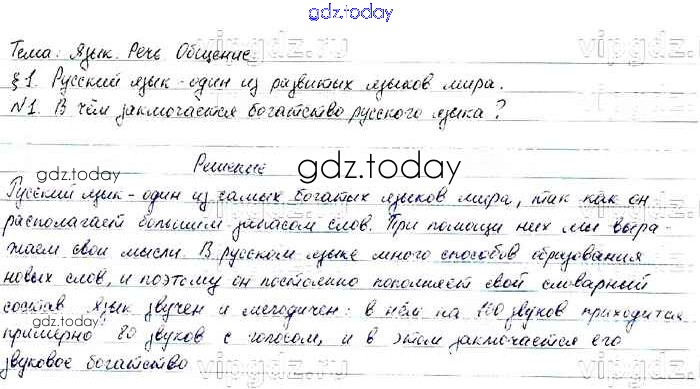 gdz.today
Тема: Язык. Речь. Общение.
§1. Русский язык - один из развитых языков мира.
№1. В чём заключается богатство русского языка?
Решение
gdz.today
Русский язык - один из самых богатых языков мира, так как он
располагает большим запасом слов. При помощи них мы выра-
жаем свои мысли. В русском языке много способов образования
новых слов, и поэтому он постоянно пополняет свой словарный
состав. Язык звучен и мелодичен: в нём на 100 звуков приходится
gdz.today
примерно 80 звуков с голосом, и в этом заключается его
звуковое богатство
vipgdz.ru